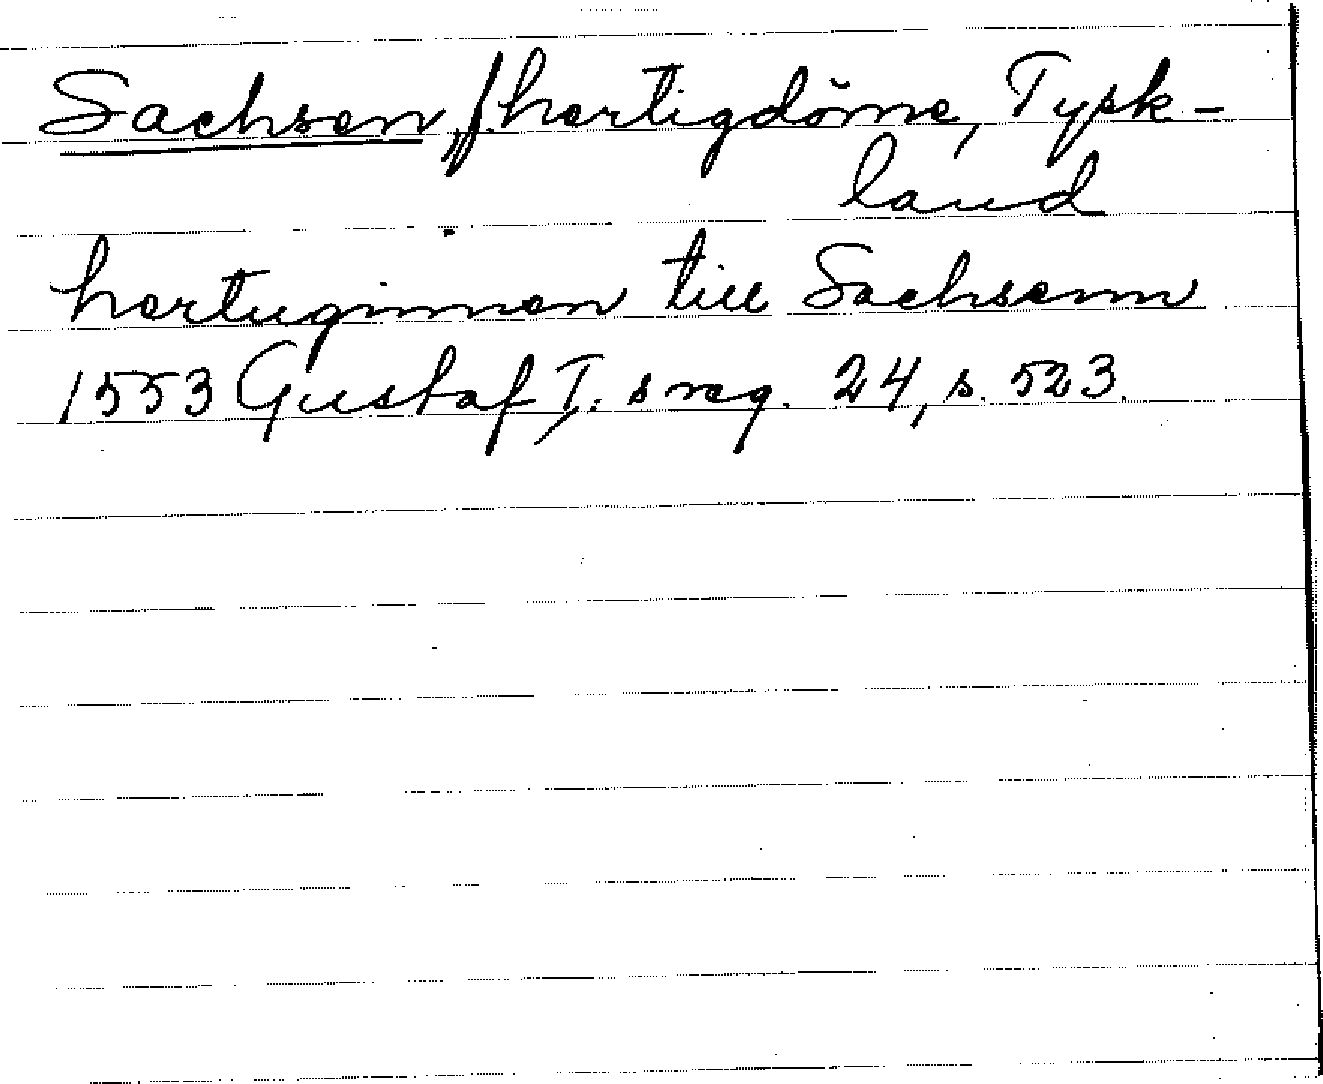 Sachsen, hertigdöme, Tysk-
land
hertuginnen till Sachsenn
1553 Gustaf I:s reg. 24, s. 523.